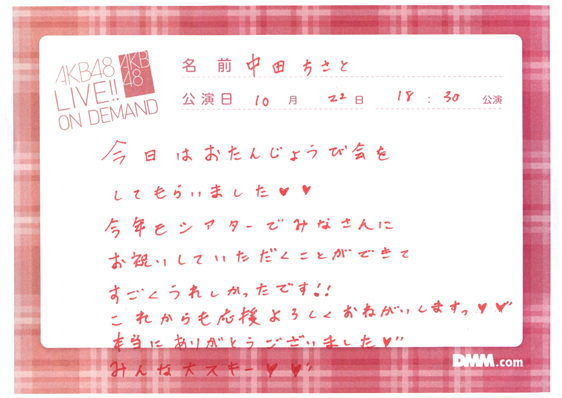 AKB48
LIVE!!
ON DEMAND
AKB
48
名前 中田ちさと
公演日 10月 22日 18:30 公演
今日はおたんじょうび会を
してもらいました♥♥
今年もシアターでみなさんに
お祝いしていただくことができて
すごくうれしかったです!!
これからも応援よろしくおねがいしますっ♥♥
本当にありがとうございました♥
みんな大スキー♥♥
DMM.com